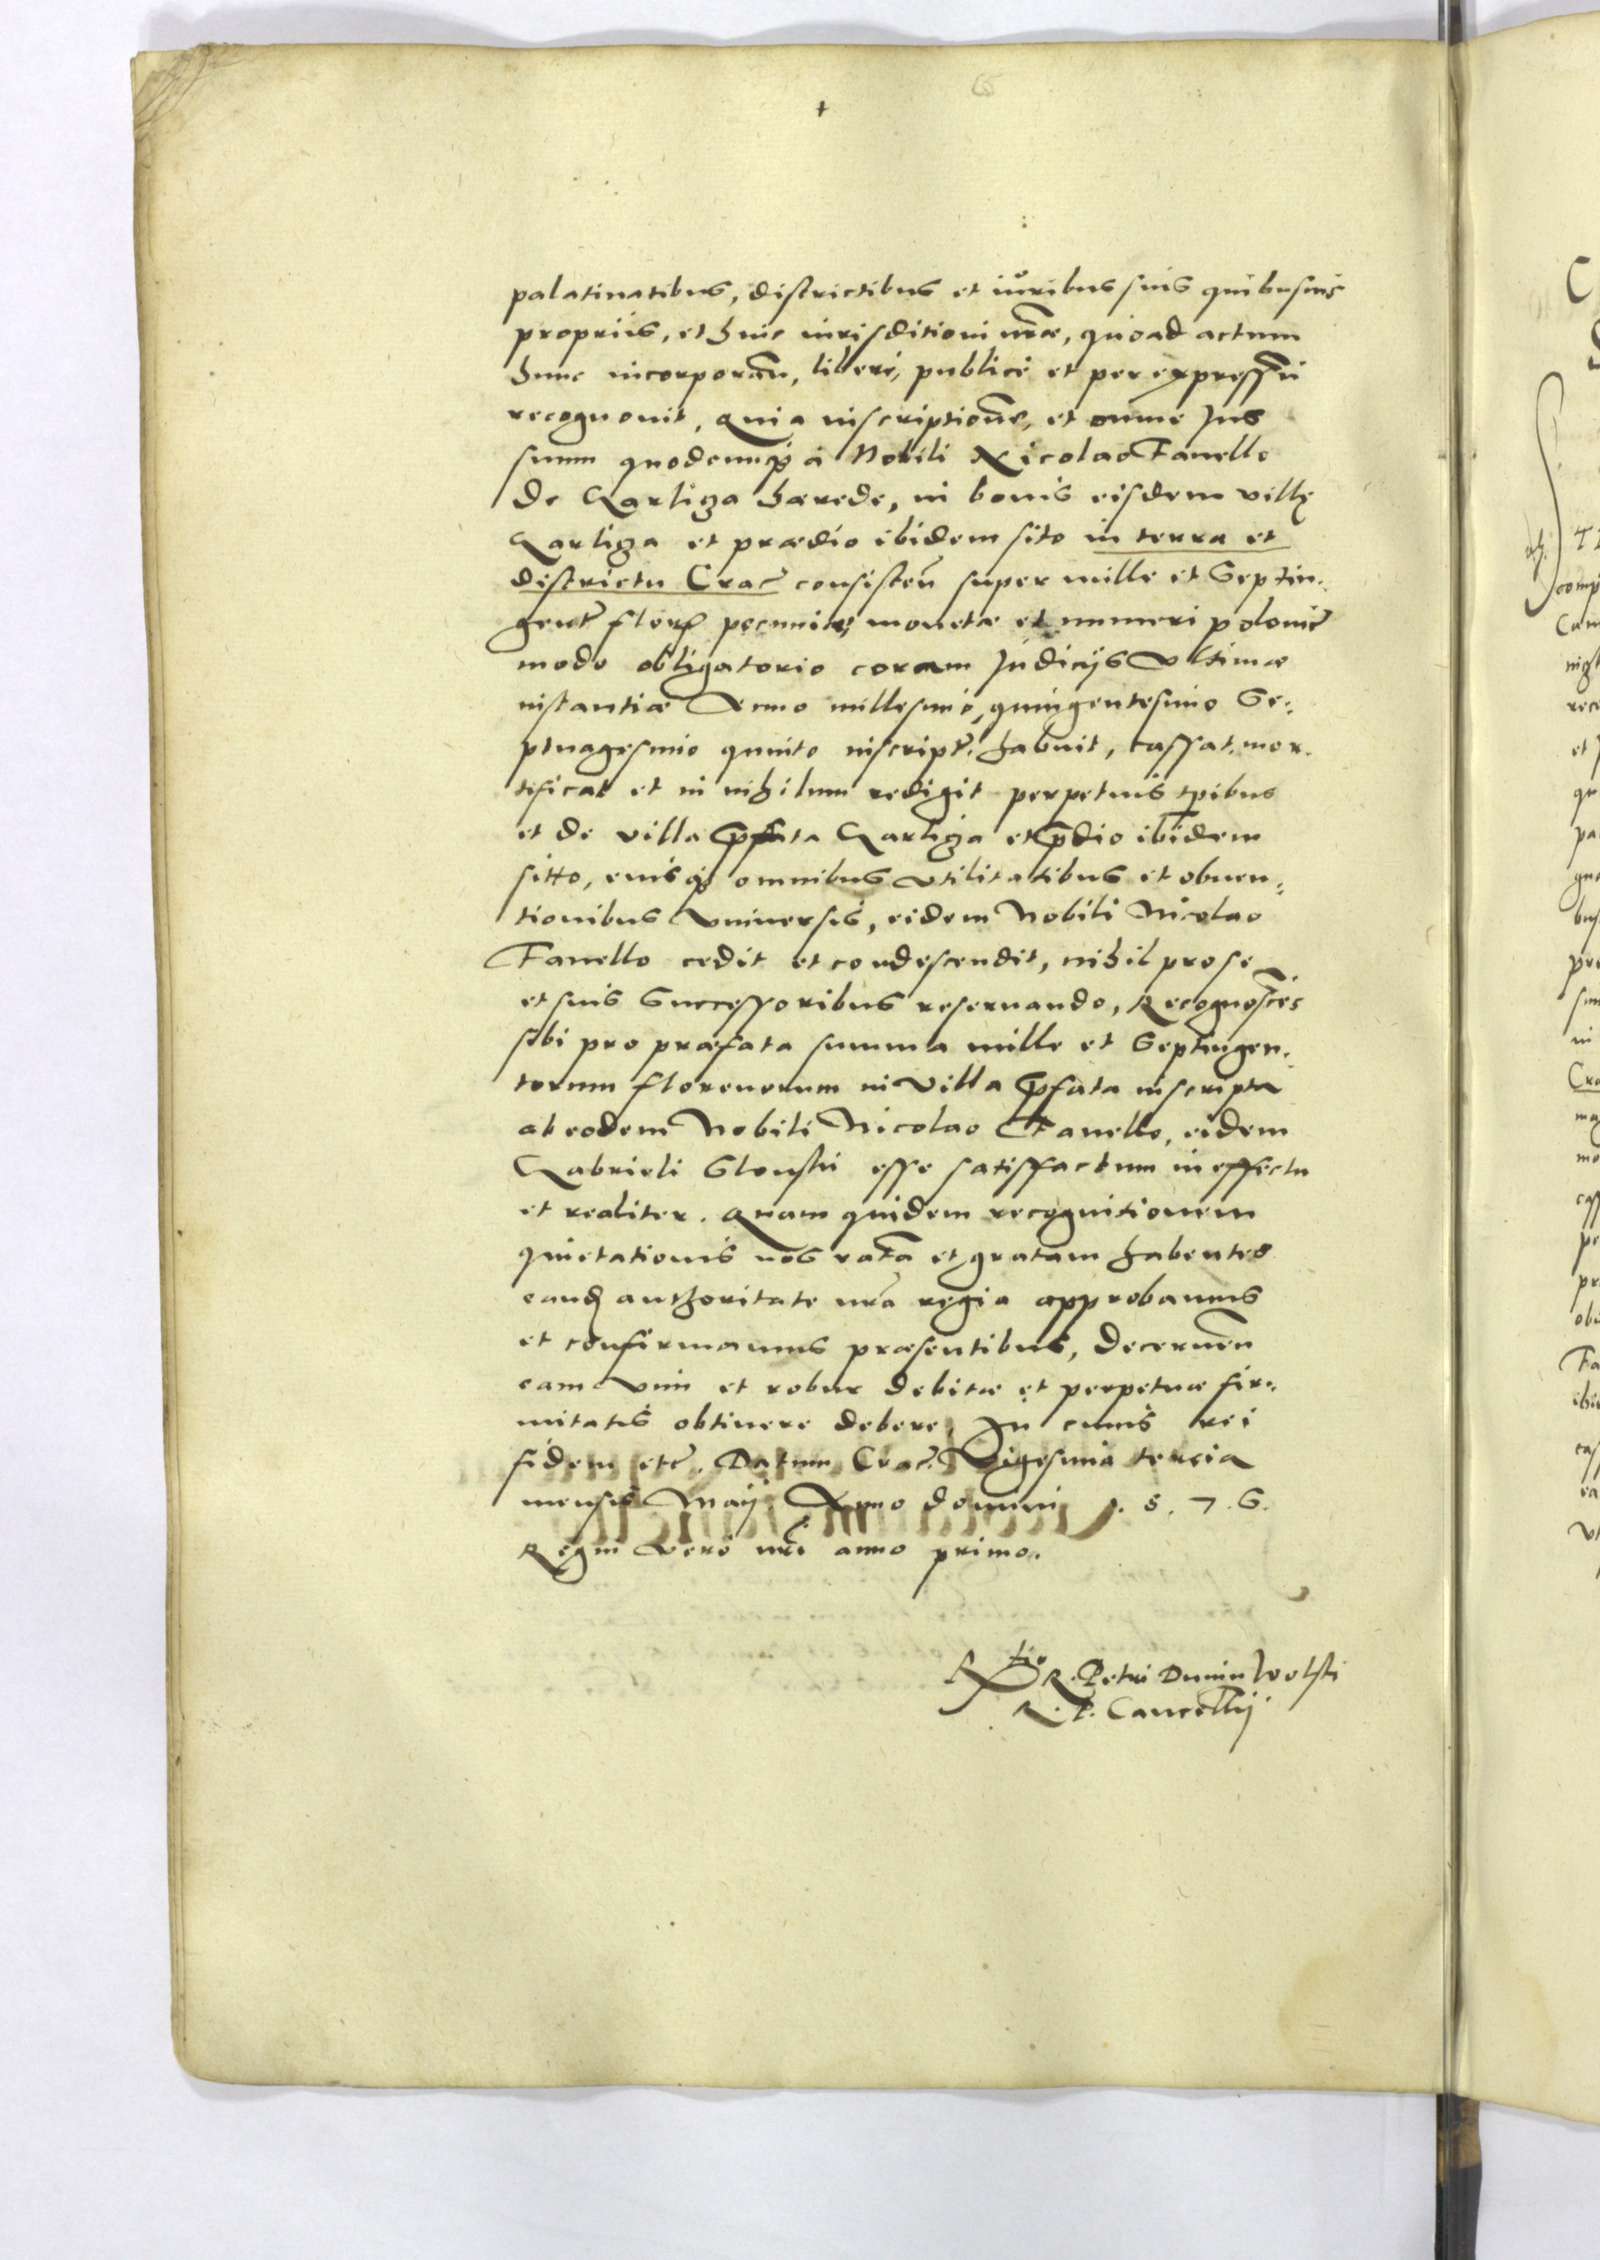 palatinatibus, districtibus et iuribus suis quibusuis
propriis, et huic iurisditioni nrae, quoad actum
hunc incorporan, liberé, publicé et per expressu
recognouit, quia inscriptione, et omne Jus
suum quodcunq à Nobili Nicolao Fanello
de Garliga haerede, in bonis eisdem villę
Garliga et praedio ibidem sito in terra et
districtu Crac consisten super mille et Septin-
gent flor pecuniae, monetae et numeri polonic
modo obligatorio coram Judicijs Vltimae
instantiae Anno millesimo, quingentesimo Se-
ptuagesimo quinto inscript. habuit, cassat. mor-
tificat et in nihilum redigit perpetuis tpibus
et de villa pfata Garliga et pdio ibidem
sitto, eiusq omnibus Vtilitatibus et obuen-
tionibus Vniuersis, eidem Nobili Nicolao
Fanello cedit et condescendit, nihil pro se
et suis Successoribus reseruando, Recognosces
sibi pro praefata summa mille et Septingen-
torum florenorum in Villa pfata inscripta
ab eodem Nobili Nicolao Fanello, eidem
Gabrieli Slonski esse satisffactum in effectu
et realiter. Quam quidem recognitionem
quietationis nos rata et gratam habentes
eand authoritate nra regia approbamus
et confirmamus praesentibus, Decernen
eam Vim et robur debitae et perpetuae fir-
mitatis obtinere debere, In cuius rei
fidem etc. Datum Crac. Vigesima tercia
mensis Maij Anno domini 1.5.7.6.
Regni Vero nri anno primo.
Rtio R. Petri Dunin Wolski
R. P. Cancellij